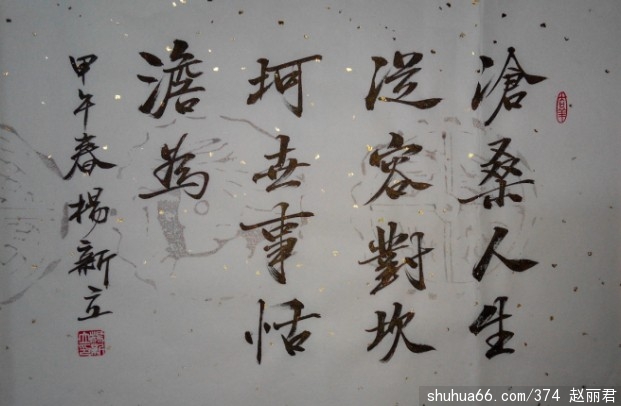 滄桑人生
從容對坎
坷世事恬
澹為
甲午春楊新立
shuhua66.com/374 赵丽君